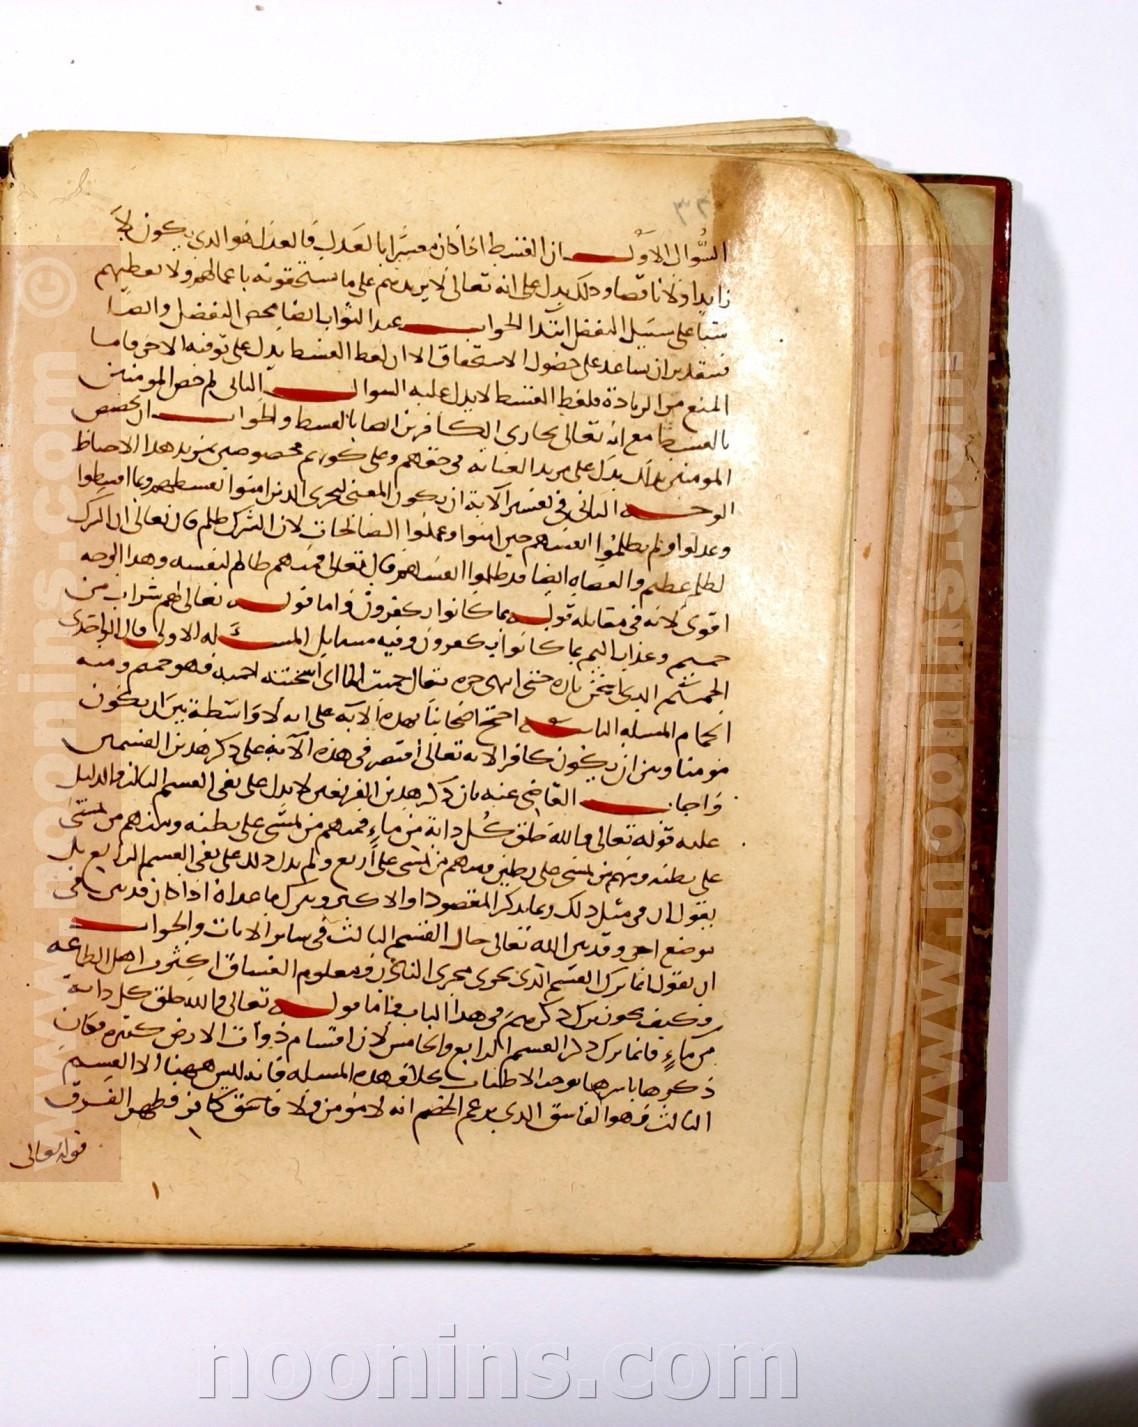 السؤال الاول ان القسط اذا كان مفسرا بالعدل فالعدل هو الذي يكون لا
زايدا ولا ناقصا وذلك يدل على انه تعالى لا يزيدهم على ما يستحقونه باعمالهم ولا يعطيهم
شيئا على سبيل التفضل ابتدا الجواب عندنا الثواب ايضا محض التفضل وايضا
فبتقدير ان يساعد على حصول الاستحقاق الا ان لفظ القسط يدل على توفيه الاجر فاما
المنع من الزيادة فلفظ القسط لا يدل عليه السوال الثاني لم خص المومنين
بالقسط مع انه تعالى يجازي الكافرين ايضا بالقسط والجواب ان تخصيص
المومنين بذلك يدل على مزيد العناية في حقهم وعلى كونهم مخصوصين بمزيد هذا الاحتياط
الوجه الثاني في تفسير الآية ان يكون المعنى ليجزي الذين امنوا بقسطهم وبما اقسطوا
وعدلوا ولم يظلموا انفسهم حين امنوا وعملوا الصالحات لان الشرك ظلم قال تعالى ان الشرك
لظلم عظيم والعصاه ايضا قد ظلموا انفسهم قال تعالى فمنهم ظالم لنفسه وهذا الوجه
اقوى لانه في مقابلة قوله بما كانوا يكفرون واما قوله تعالى لهم شراب من
حميم وعذاب اليم بما كانوا يكفرون وفيه مسايل المسئله الاولى قال الواحدي
الحميم الذي اسخن بالنار حتى انتهى حره يقال حميت الما اي اسخنته احميه فهو حميم ومنه
الحمام المسله الثانيه احتج اصحابنا بهذه الآية على انه لا واسطة بين ان يكون
مومنا وبين ان يكون كافرا لانه تعالى اقتصر في هذه الآية على ذكر هذين القسمين
واجاب القاضي عنه بان ذكر هذين الفريقين لا يدل على نفي القسم الثالث والدليل
عليه قوله تعالى والله خلق كل دابة من ماء فمنهم من يمشي على بطنه ومنهم من يمشي
على بطنه ومنهم من يمشي على رجلين ومنهم من يمشي على أربع ولم يدل ذلك على نفي القسم الرابع بل
نقول ان في مثل ذلك ربما يذكر المقصود او الاكثر ويترك ما عداه اذا كان قد بين في
موضع اخر وقد بين الله تعالى حال القسم الثالث في ساير الايات والجواب
ان نقول انما يترك القسم الذي يجري مجرى النادر ومعلوم ان الفساق اكثر من اهل الطاعه
وكيف يجوز ترك ذكرهم في هذا الباب واما قوله تعالى والله خلق كل دابة
من ماء فانما ترك ذكر القسم الرابع والخامس لان اقسام ذوات الارض كثيره فكان
ذكرها باسرها يوجب الاطناب بخلاف هذه المسله فانه ليس ههنا الا القسم
الثالث وهو الفاسق الذي يزعم الخصم انه لا مؤمن ولا كافر فظهر الفرق
قوله تعالى
noonins.com
www.noonins.com ©
www.noonins.com ©